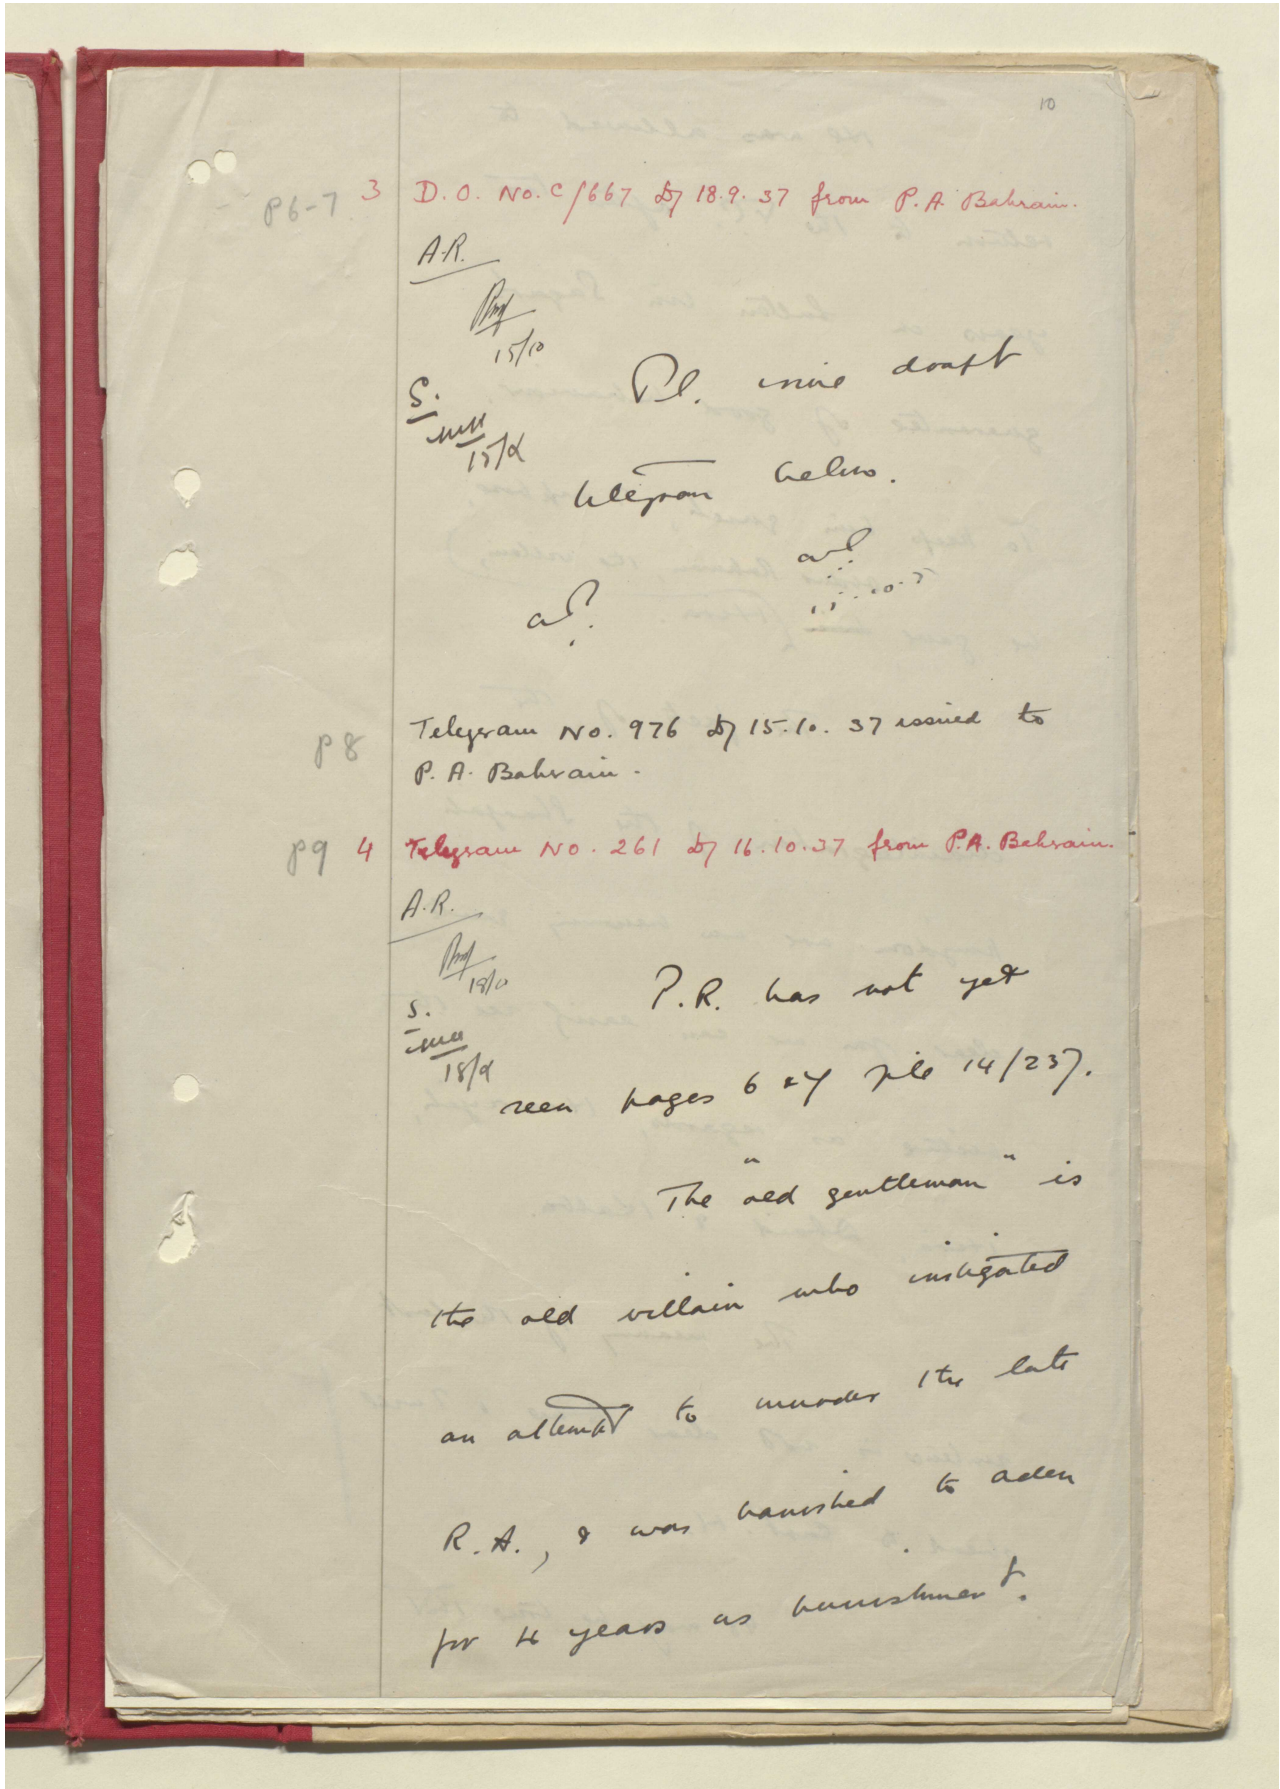 10
P6-7 3 D.O. No. C/667 D/ 18.9.37 from P.A. Bahrain.
A.R.
15/10
Pl. issue draft
S.
15/X
telegram below.
Telegram No. 976 D/ 15.10.37 issued to
P8
P.A. Bahrain.
P9 4 Telegram No. 261 D/ 16.10.37 from P.A. Bahrain.
A.R.
18/10
P.R. has not yet
S.
18/X
seen pages 6 & 7 file 14/237.
The "old gentleman" is
the old villain who instigated
an attempt to murder the late
R.A., & was banished to Aden
for 4 years as punishment.